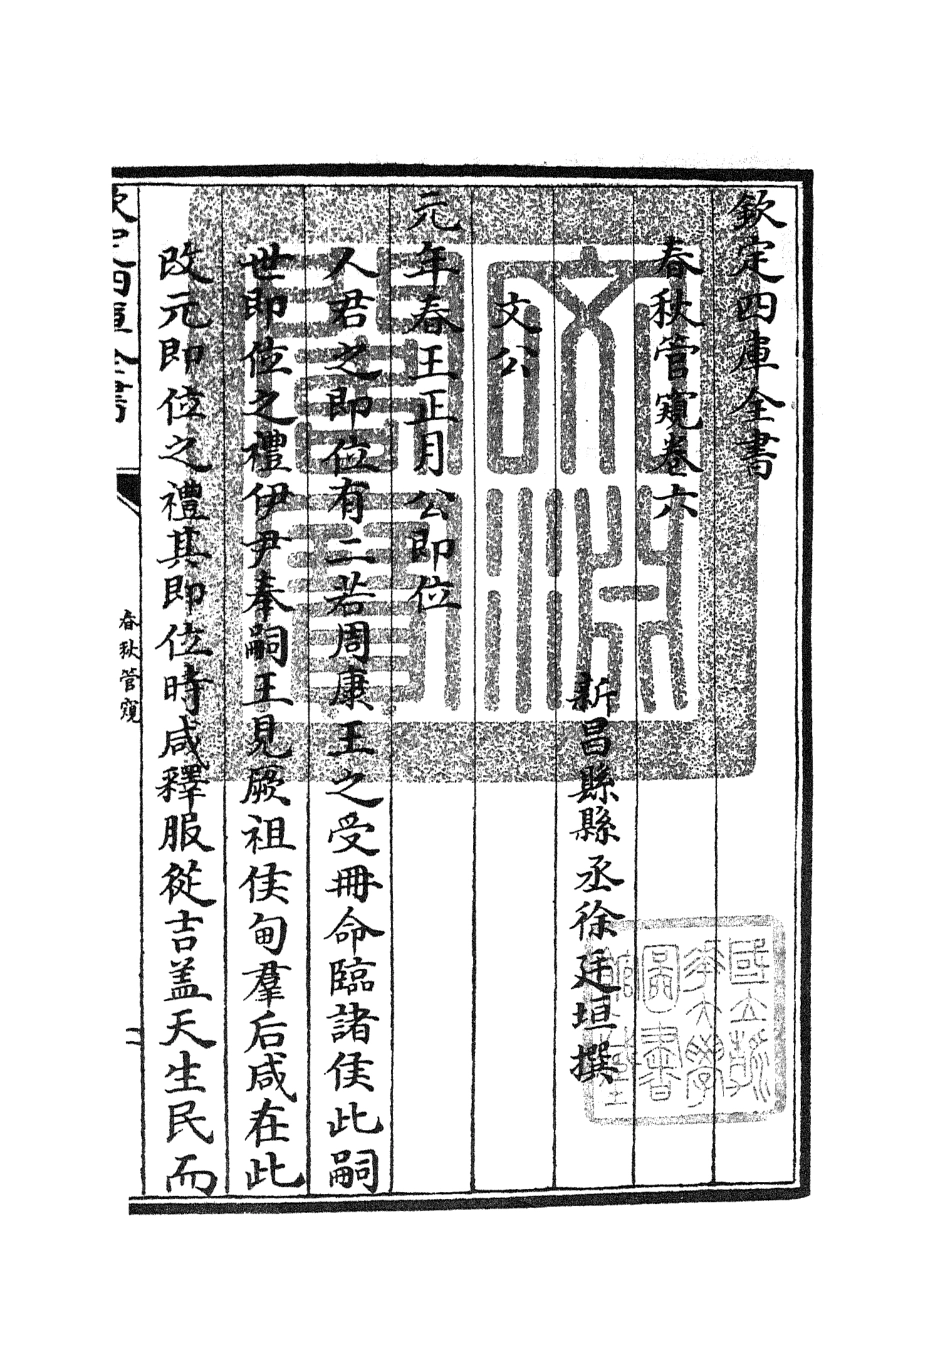 欽定四庫全書
春秋管窺卷六
新昌縣縣丞徐廷垣撰
文公
元年春王正月公即位
人君之即位有二若周康王之受冊命臨諸侯此嗣
世即位之禮伊尹奉嗣王見厥祖侯甸羣后咸在此
改元即位之禮其即位時咸釋服從吉盖天生民而
欽定四庫全書
春秋管窺
二